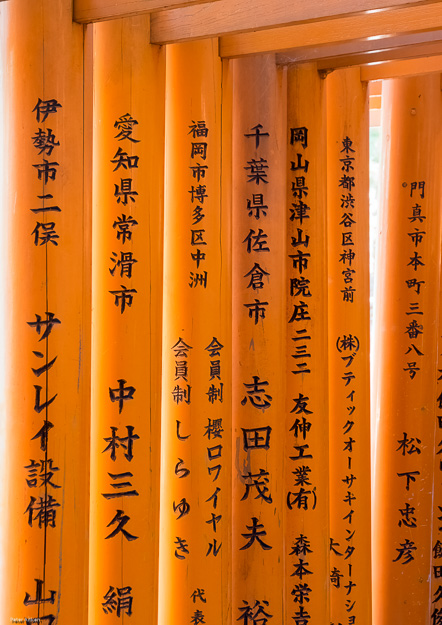 伊勢市二俣 サンレイ設備
愛知県常滑市 中村三久 絹
福岡市博多区中洲
会員制 櫻ロワイヤル
会員制 しらゆき
代表
千葉県佐倉市 志田茂夫 裕
岡山県津山市院庄二三二 友伸工業(有) 森本栄吉
東京都渋谷区神宮前 (株)ブティックオーサキインターナショ
大崎
門真市本町三番八号 松下忠彦